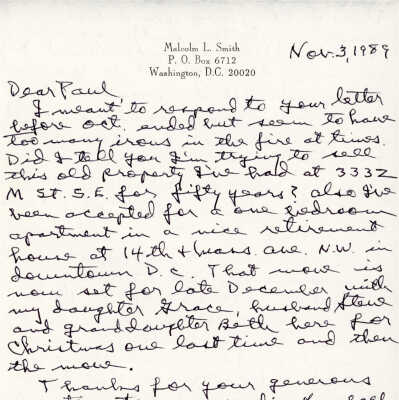 Malcolm L. Smith
P. O. Box 6712
Washington, D.C. 20020
Nov. 3, 1989
Dear Paul,
I meant to respond to your letter
before Oct. ended but seem to have
too many irons in the fire at times.
Did I tell you I'm trying to sell
this old property I've had at 3332
M St. S.E. for fifty years? also I've
been accepted for a one bedroom
apartment in a nice retirement
house at 14th & Mass. Ave. N.W. in
downtown D.C. That move is
now set for late December with
my daughter Grace, husband Steve
and granddaughter Beth here for
Christmas one last time and then
the move.
Thanks for your generous